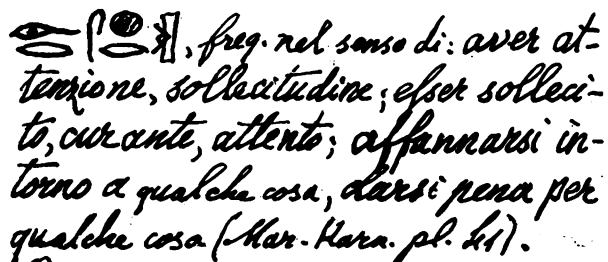 , freq. nel senso di: aver at-
tenzione, sollecitudine; esser solleci-
to, curante, attento; affannarsi in-
torno a qualche cosa, darsi pena per
qualche cosa (Mar. Karn. pl. 41).